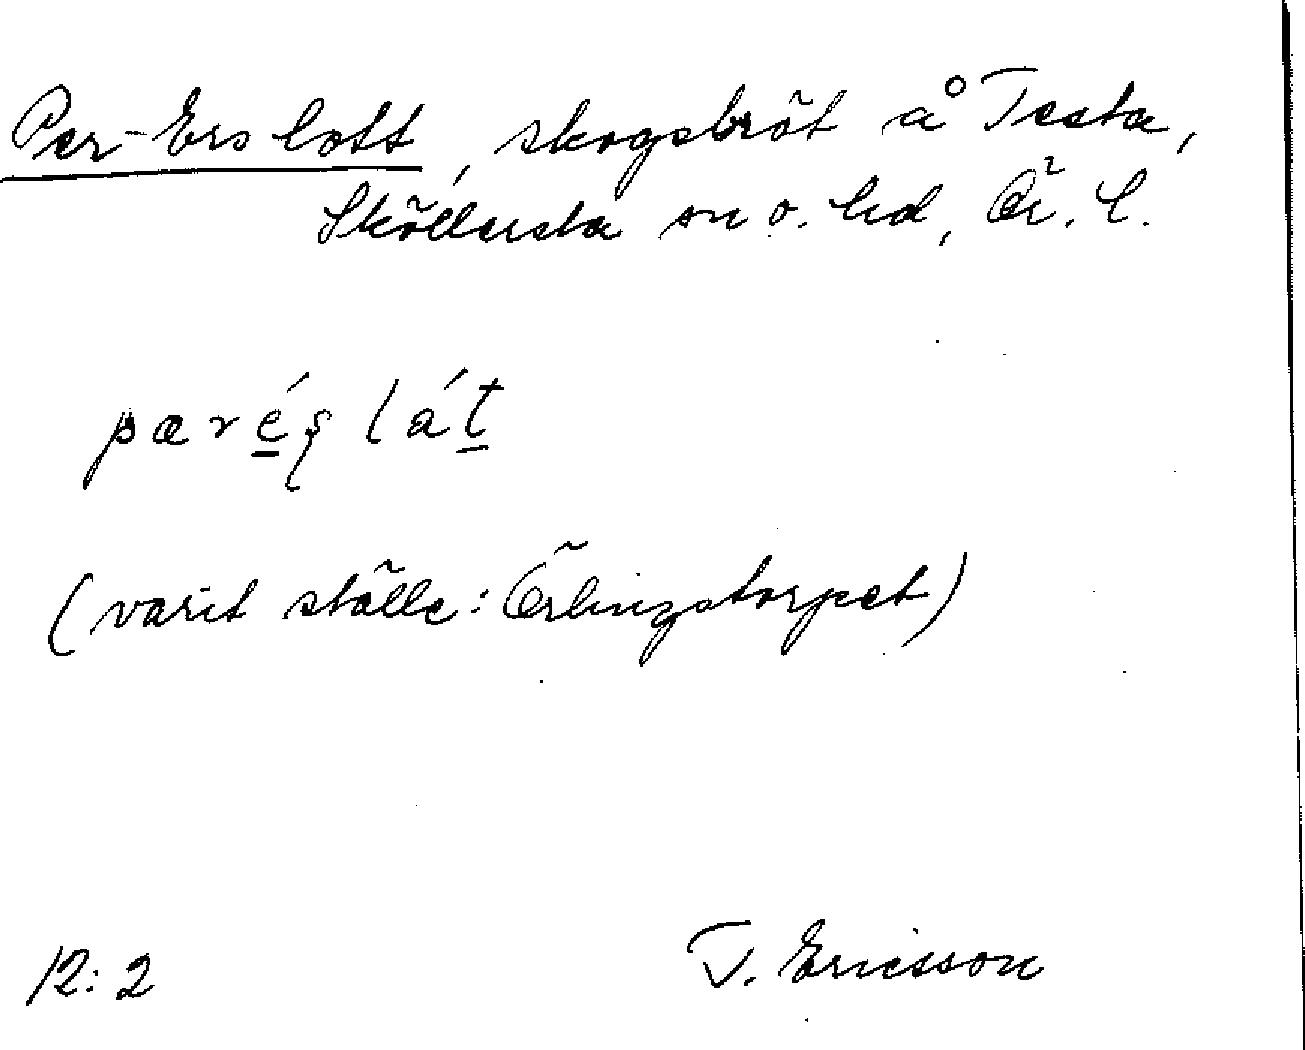 Per-Ers lott, skogsbröt å Testa,
Sköllersta sn o. hd, Ör. l.
pærés låt
(varit ställe: Örlingstorpet)
12:2
T. Ericsson